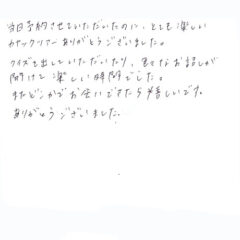 当日予約させていただいたのに、とても楽しい
カヤックツアーありがとうございました。
クイズを出していただいたり、色々なお話しが
聞けて楽しい時間でした。
またどこかでお会いできたら嬉しいです。
ありがとうございました。